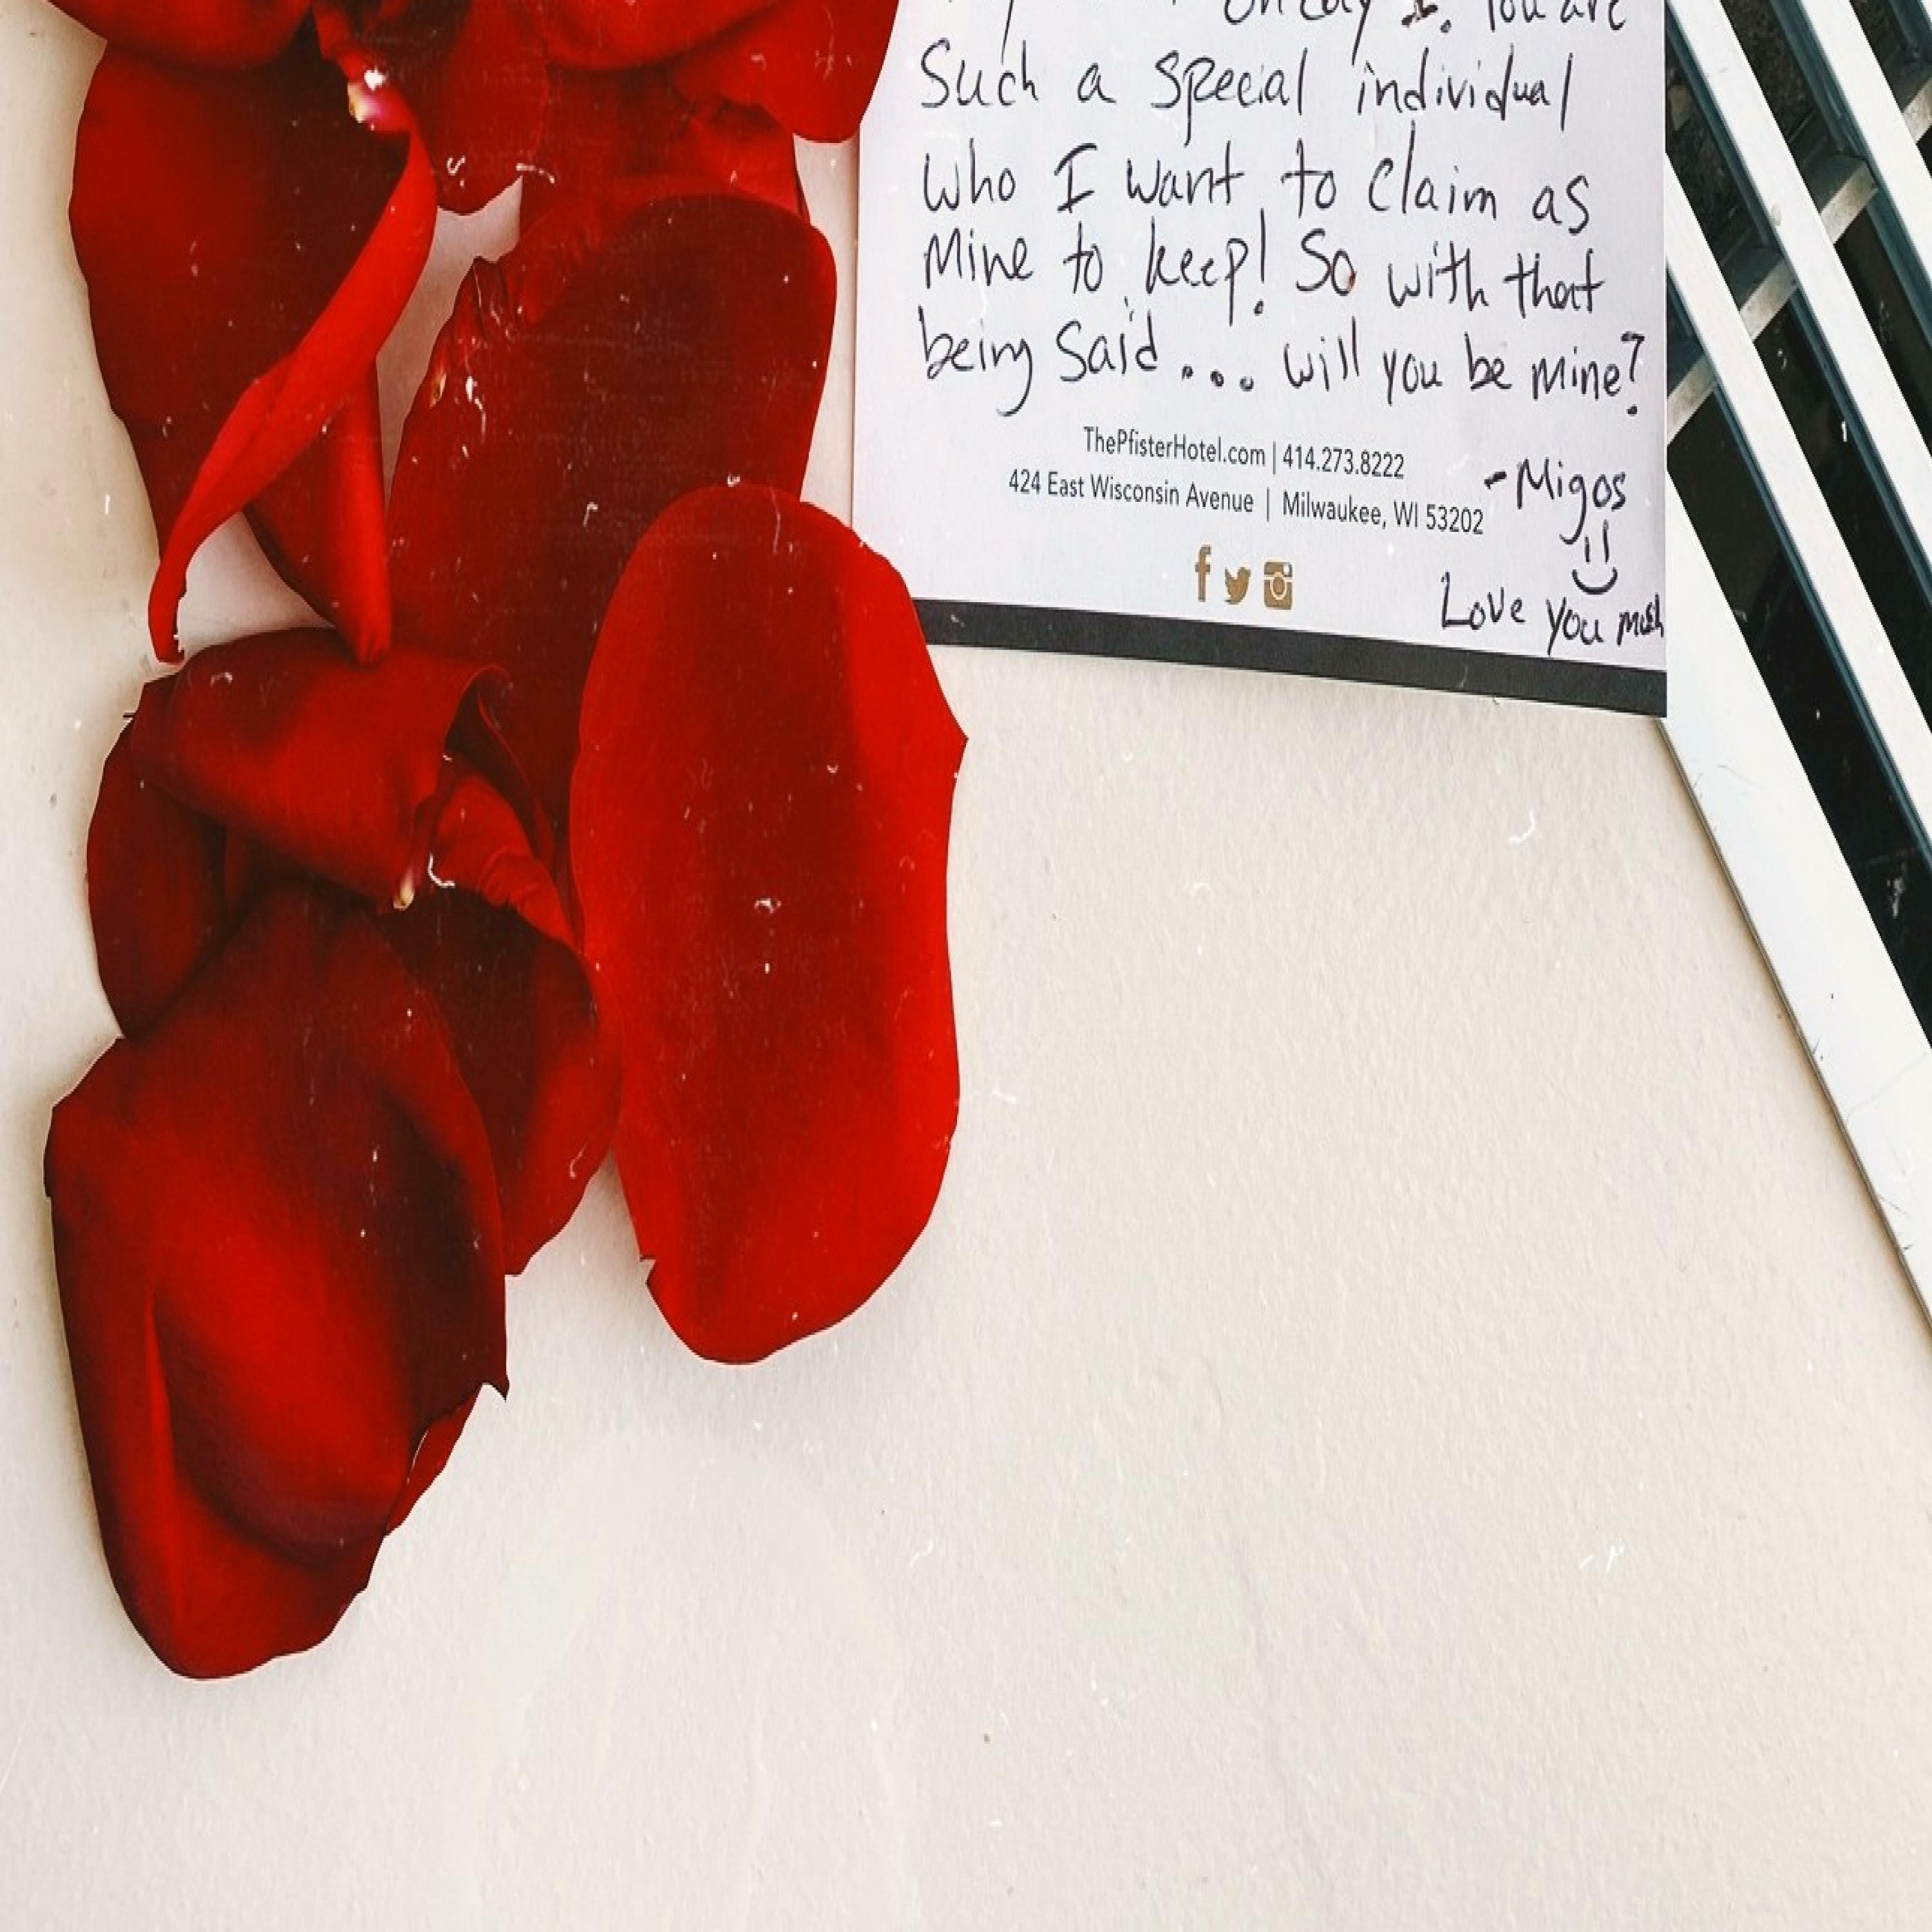 You are
Such a special individual
who I want to claim as
Mine to keep! So with that
being Said... will you be mine?
ThePfisterHotel.com | 414.273.8222
424 East Wisconsin Avenue | Milwaukee, WI 53202
-Migos
Love you